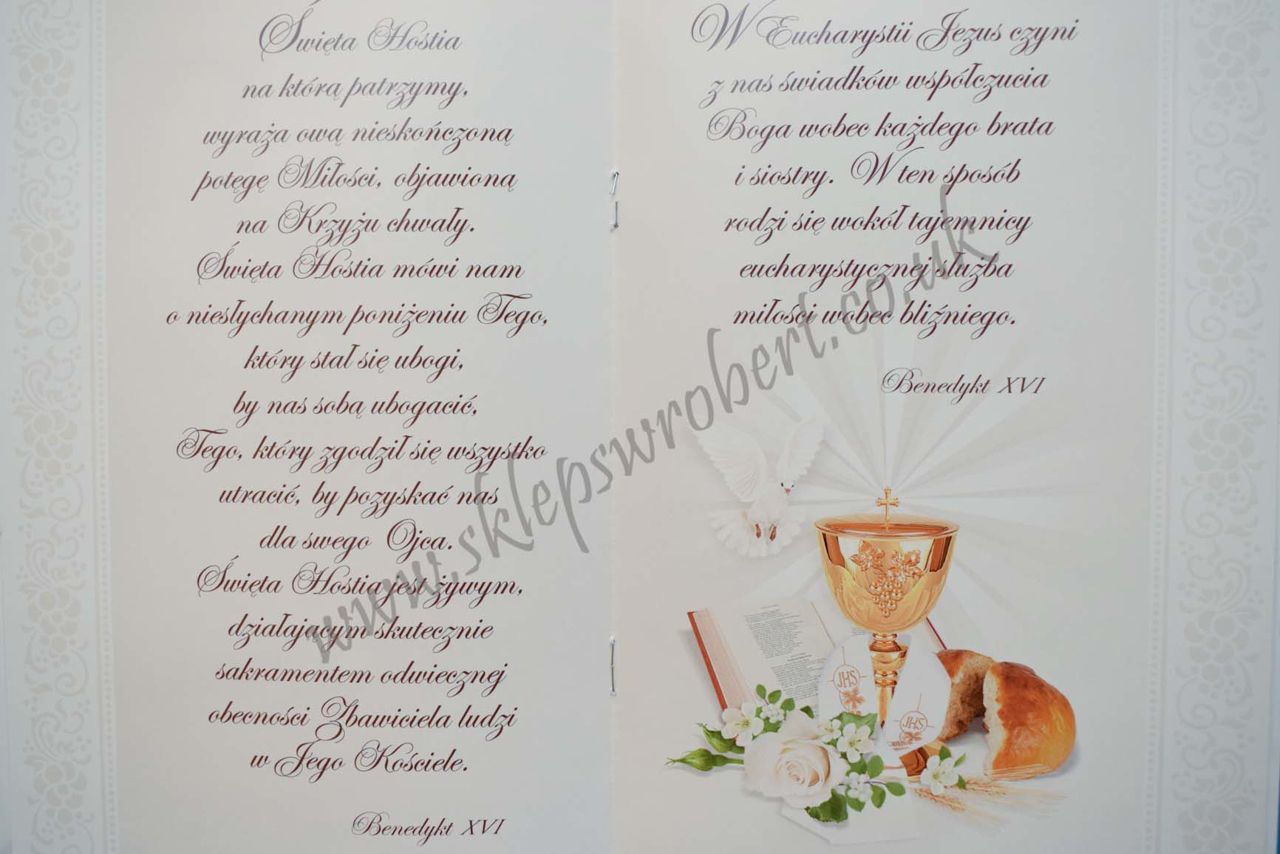 Święta Hostia
na którą patrzymy,
wyraża ową nieskończoną
potęgę Miłości, objawioną
na Krzyżu chwały.
Święta Hostia mówi nam
o niesłychanym poniżeniu Tego,
który stał się ubogi,
by nas sobą ubogacić,
Tego, który zgodził się wszystko
utracić, by pozyskać nas
dla swego Ojca.
Święta Hostia jest żywym,
działającym skutecznie
sakramentem odwiecznej
obecności Zbawiciela ludzi
w Jego Kościele.
Benedykt XVI
W Eucharystii Jezus czyni
z nas świadków współczucia
Boga wobec każdego brata
i siostry. W ten sposób
rodzi się wokół tajemnicy
eucharystycznej służba
miłości wobec bliźniego.
Benedykt XVI
JHS
JHS
www.sklepswrobert.co.uk